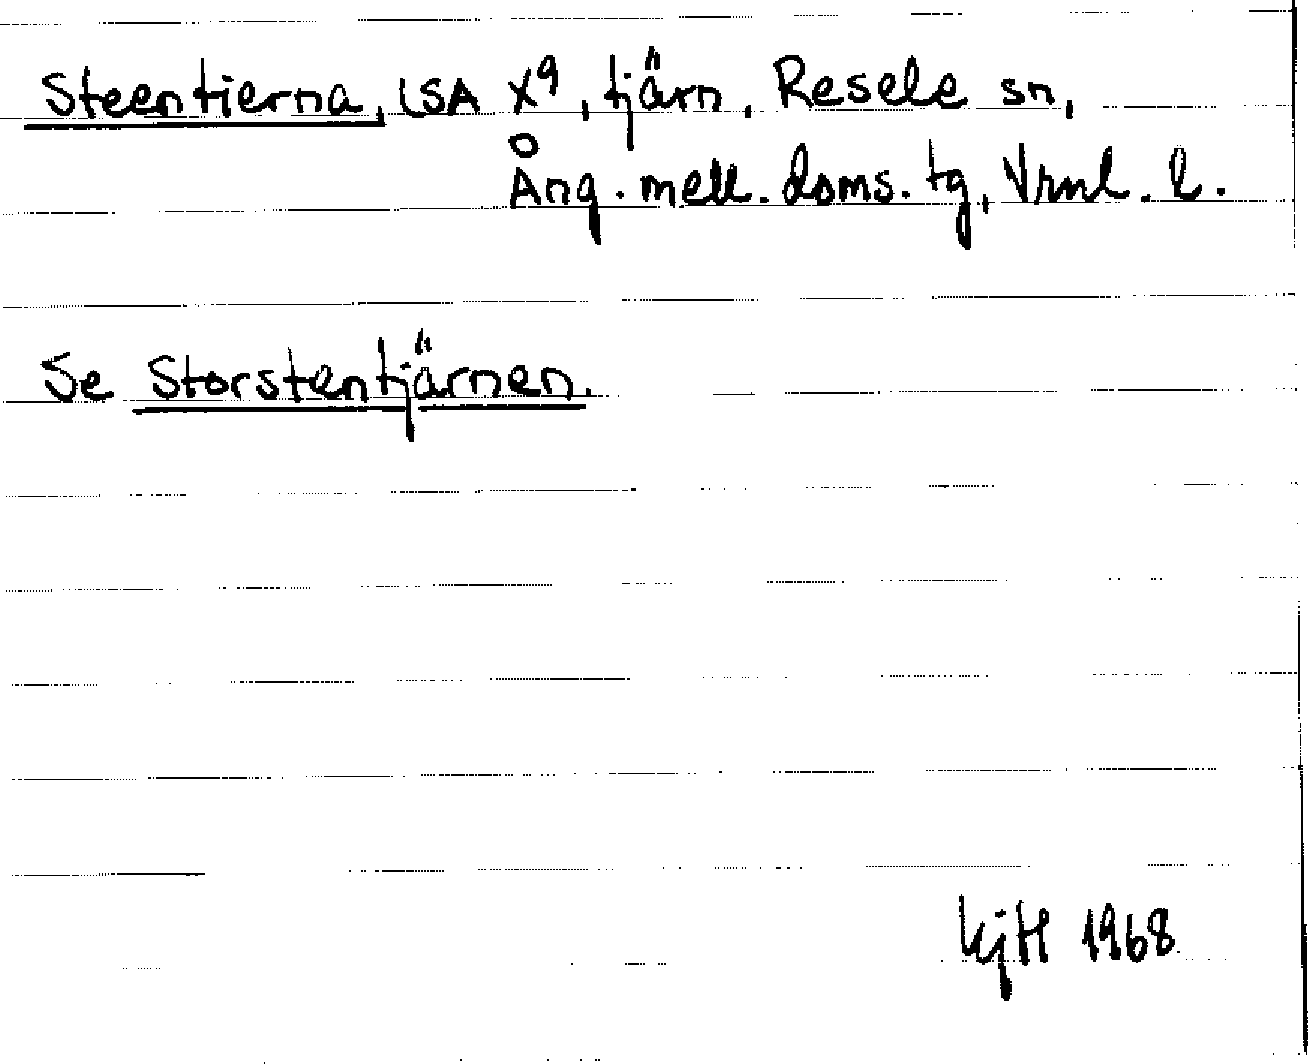 Steentierna, LSA X9, tjärn, Resele sn,
Ång. mell. doms. tg, Vrnl. l.
Se Storstentjärnen.
KjH 1968